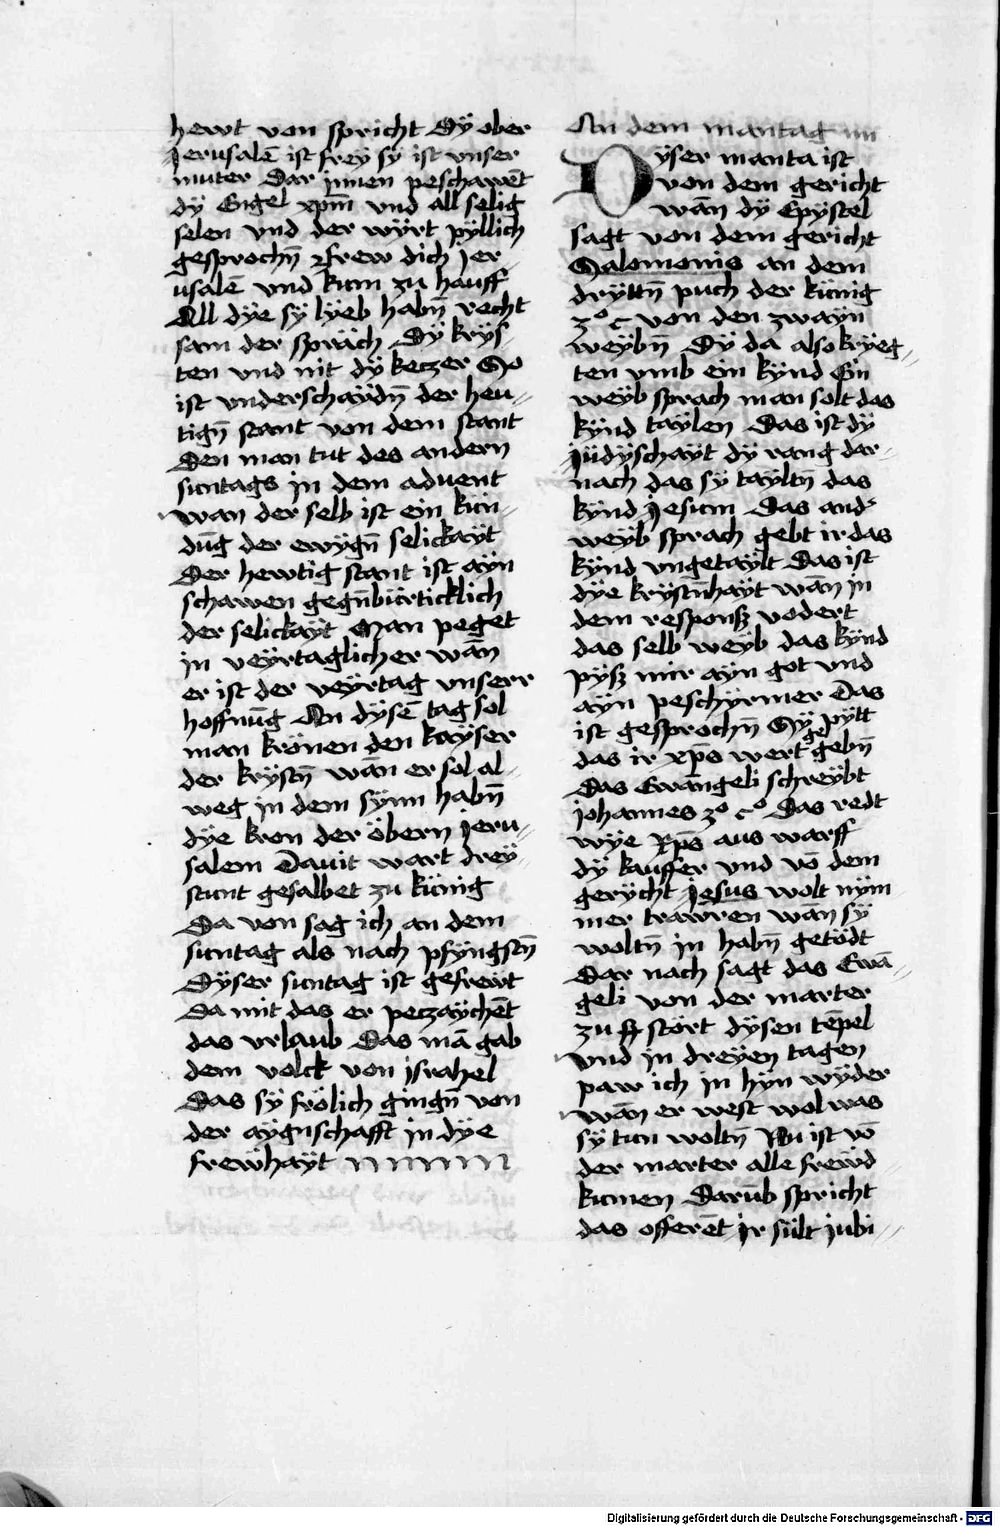 hewt von spricht Dÿ ober
Jerusalē ist freÿ sÿ ist vnser
muter Dar jnnen peschawēt
dÿ Engel xp̄m vnd all selig
selen vnd der wÿrt pÿllich
gesprochn̄ frew dich Jer
usalē vnd kum zu hauff
All dÿe sÿ lÿeb habn̄ recht
sam der spräch Dÿ krÿs-
ten vnd nit dÿ keczer So
ist vnderschaÿdn̄ der heu-
tign̄ stant von dem stant
Den man tut des andern
suntags in dem aduent
wan der selb ist ein kün-
dūg der ewÿgn̄ selickaÿt
Der hewtig stant ist aÿn
schawen gegn̄bürticklich
der selickaÿt Man peget
in veÿrtaglicher wān
er ist der veÿrtag vnserr
hoffnūg An dÿsē tag sol
man krönen den kaÿser
der krÿstn̄ wān er sol al-
weg in dem sÿnn habn̄
dÿe kron der öbern Jeru-
salem Dauit wart dreÿ-
stunt gesalbet zu künig
Da von sag ich an dem
suntag als nach pfÿngstn̄
Dÿser suntag ist gefrewt
Da mit das er peczaÿchēt
das vrlaub Das mā gab
dem volck von jsrahel
Das sÿ frölich gingn̄ von
der aÿgnschafft in dÿe
frewhaÿt
An dem mantag
Dÿser manta ist
von dem gericht
wān dÿ Epÿstel
sagt von dem gericht
Salomonis an dem
drÿttn̄ puch der künig
3° c° von den zwaÿn
weÿbn̄ Dÿ da also krÿeg-
ten vmb ein kÿnd Ein
weÿb sprach man solt das
kÿnd taÿlen Das ist dÿ
Jüdÿschaÿt dÿ rang dar-
nach das sÿ taÿltn̄ das
kÿnd Jesum Das and'
weÿb sprach gebt ir das
kÿnd vngetaÿlt Das ist
dÿe krÿstn̄haÿt wān in
dem responsz vodert
das selb weÿb das kÿnd
pÿsz mir aÿn got vnd
aÿn peschÿrmer Das
ist gesprochn̄ Sÿ pÿtt
das ir xp̄s wert gegebn̄
Das Ewāngeli schreÿbt
johannes 3° c° Das redt
wÿe xp̄s aus warff
dÿ kauffer vnd vō dem
gerÿcht Jesus wolt nÿm
mer trawren wān sÿ
woltn̄ in habn̄ getödt
Dar nach sagt das Ewā-
geli von der marter
zu stört dÿsen tēpel
vnd in dreÿen tagen
paw ich in hÿn wÿder
wān er west wol was
sÿ tun woltn̄ Nu ist vō
der marter alle frewd
kumen Darūb spricht
das offerēt Ir sült jubi-
Digitalisierung gefördert durch die Deutsche Forschungsgemeinschaft - DFG